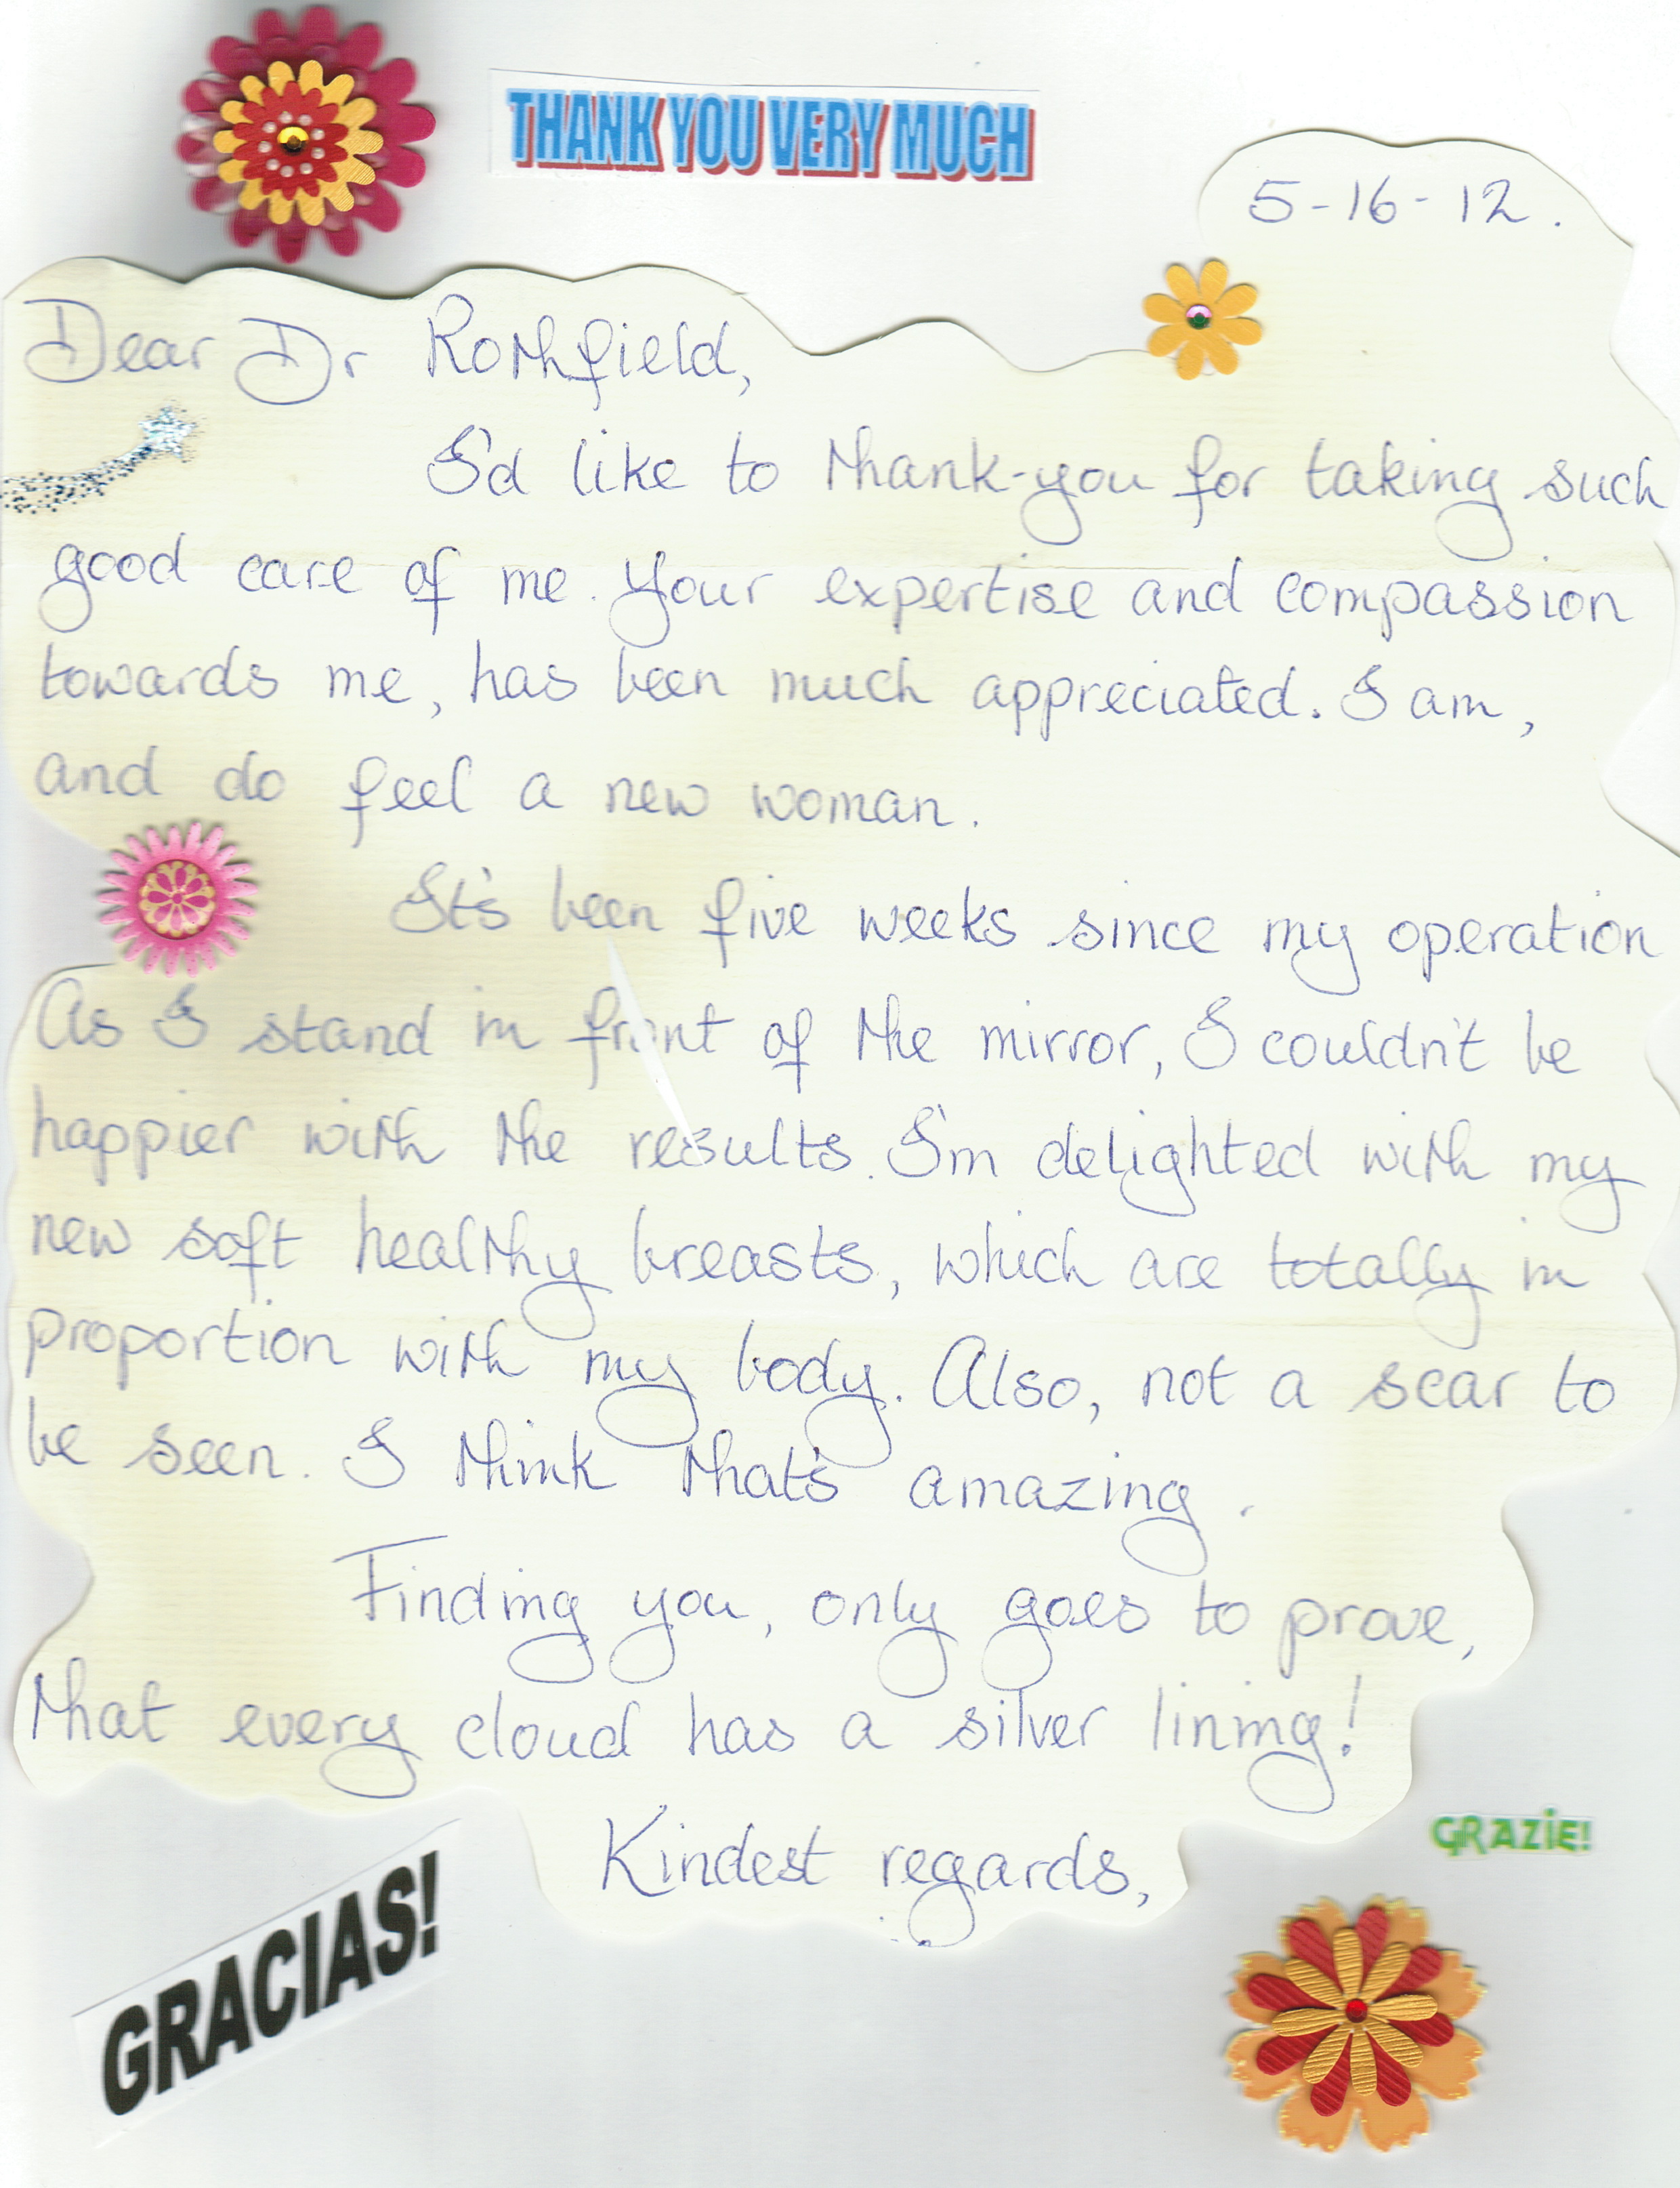 THANK YOU VERY MUCH
5-16-12.
Dear Dr Rothfield,
I'd like to thank-you for taking such
good care of me. Your expertise and compassion
towards me, has been much appreciated. I am,
and do feel a new woman.
It's been five weeks since my operation
As I stand in front of the mirror, I couldn't be
happier with the results. I'm delighted with my
new soft healthy breasts, which are totally in
proportion with my body. Also, not a scar to
be seen. I think that's amazing.
Finding you, only goes to prove,
that every cloud has a silver lining!
Kindest regards,
GRAZIE!
GRACIAS!